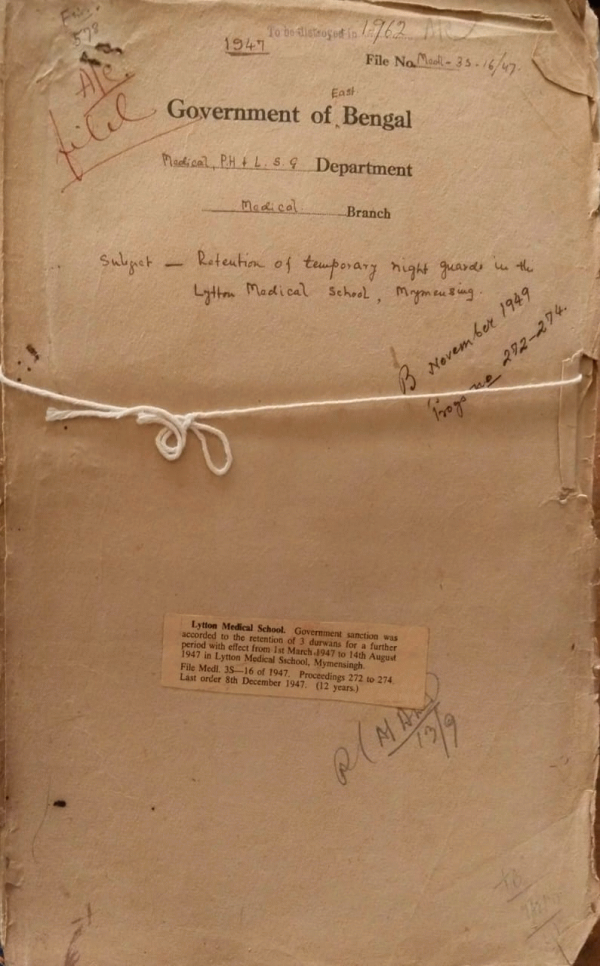 To be destroyed in 1962
1947
File No. Medl - 3S - 16/47.
578
A/C.
East
Government of Bengal
Medical, P.H & L. S. G Department
Medical Branch
Subject — Retention of temporary night guards in the
Lytton Medical School, Mymensing.
B November 1949
Progs no 272-274.
Lytton Medical School. Government sanction was
accorded to the retention of 3 durwans for a further
period with effect from 1st March 1947 to 14th August
1947 in Lytton Medical Sschool, Mymensingh.
File Medl. 3S—16 of 1947. Proceedings 272 to 274.
Last order 8th December 1947. (12 years.)
13/9